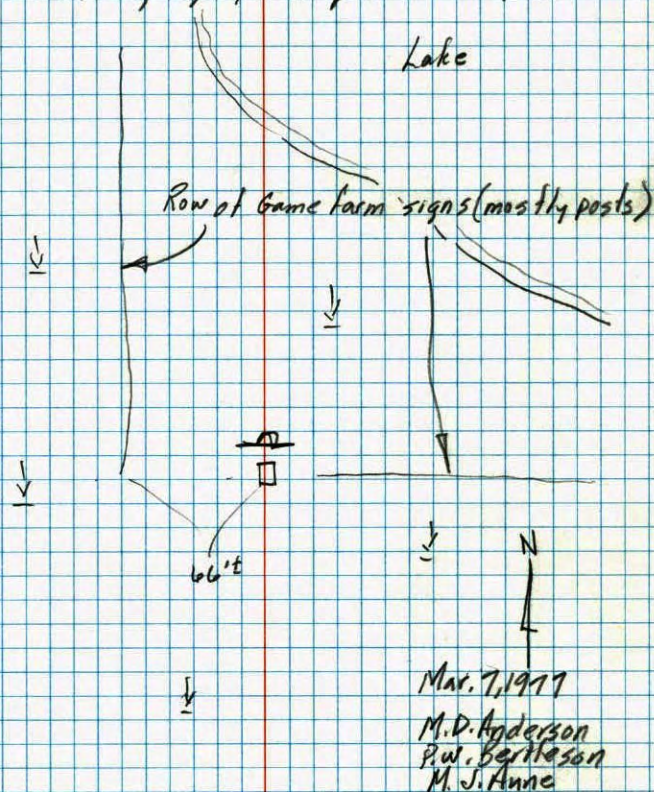 Lake
Row of Game farm signs (mostly posts)
66'±
N
Mar. 7, 1977
M.D. Anderson
P.W. Bertleson
M. J. Anne